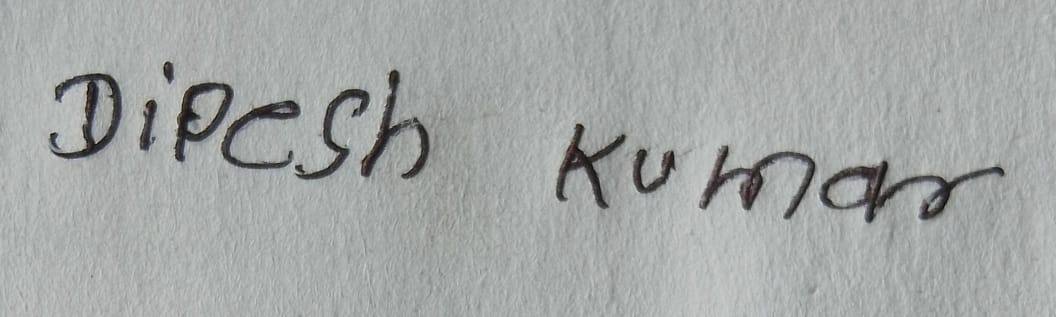 Dipesh Kumar